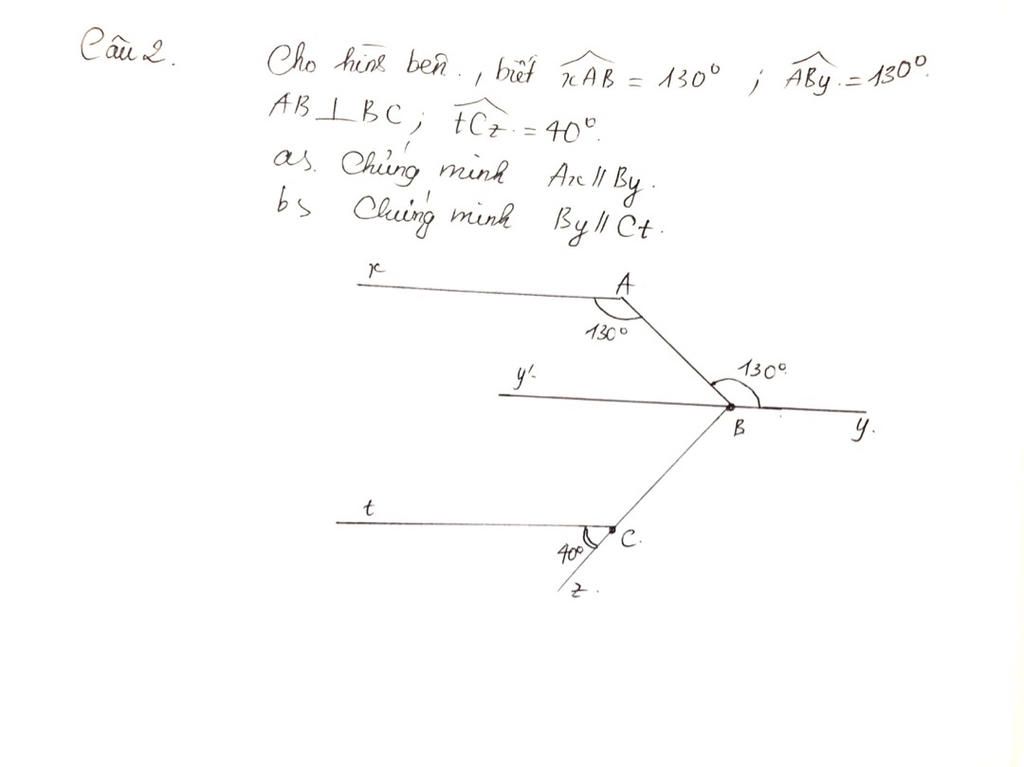 Câu 2. Cho hình bên, biết xAB = 130° ; ABy = 130°.
AB ⊥ BC ; tCz = 40°.
a, Chứng minh Ax // By.
b, Chứng minh By // Ct.
x
A
130°
130°
y'
B
y.
t
C.
40°
z.